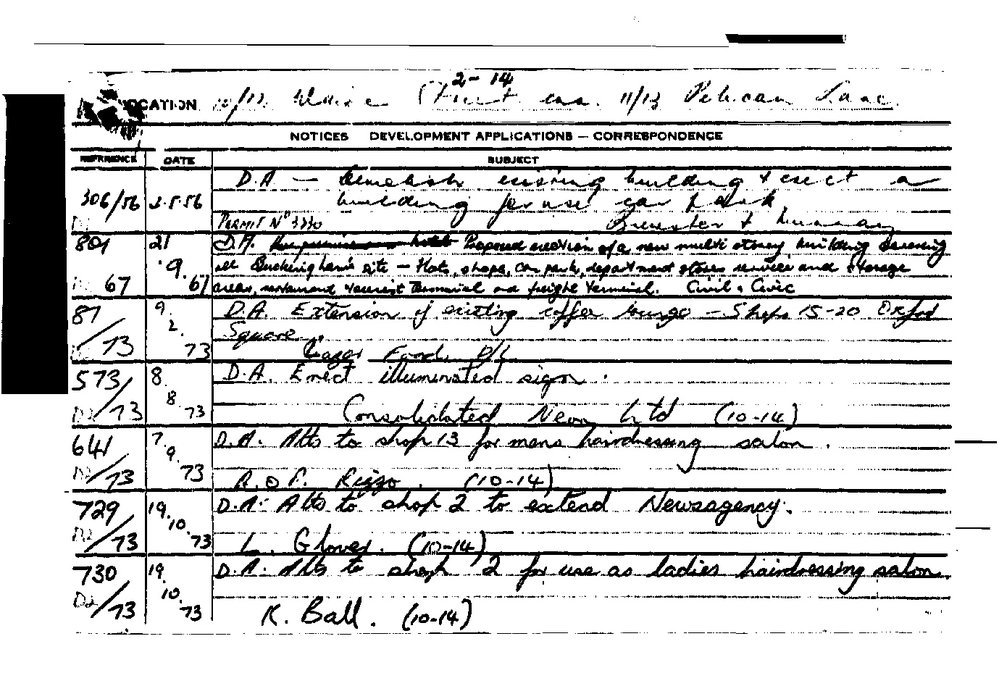 2-14
LOCATION 11/13 Pelican Lane.
NOTICES DEVELOPMENT APPLICATIONS — CORRESPONDENCE
REFERENCE DATE SUBJECT
306/56 2.5.56 D.A — demolish existing building & erect a
building for use car park
PERMIT Nº
801 67 21 9. 67 D.A. Proposed erection of a new multi storey building covering
all Buckingham's site — Flats, shops, car park, department stores services and storage
areas, restaurant tourist Terminal and freight Terminal. Civil & Civic
87/73 9. 2. 73 D.A. Extension of existing coffee lounge — Shops 15-20 Oxford
Square.
Food P/L
573/73 D2 8. 8. 73 D.A. Erect illuminated sign.
Consolidated Neon Ltd (10-14)
641/73 D2 7. 9. 73 D.A. Alts to shop 13 for mens hairdressing salon.
R. & P. Rizzo. (10-14)
729/73 D2 19. 10. 73 D.A. Alts to shop 2 to extend Newsagency.
L. Glover. (10-14)
730/73 D2 19. 10. 73 D.A. Alts to shop 2 for use as ladies hairdressing salon.
K. Ball. (10-14)